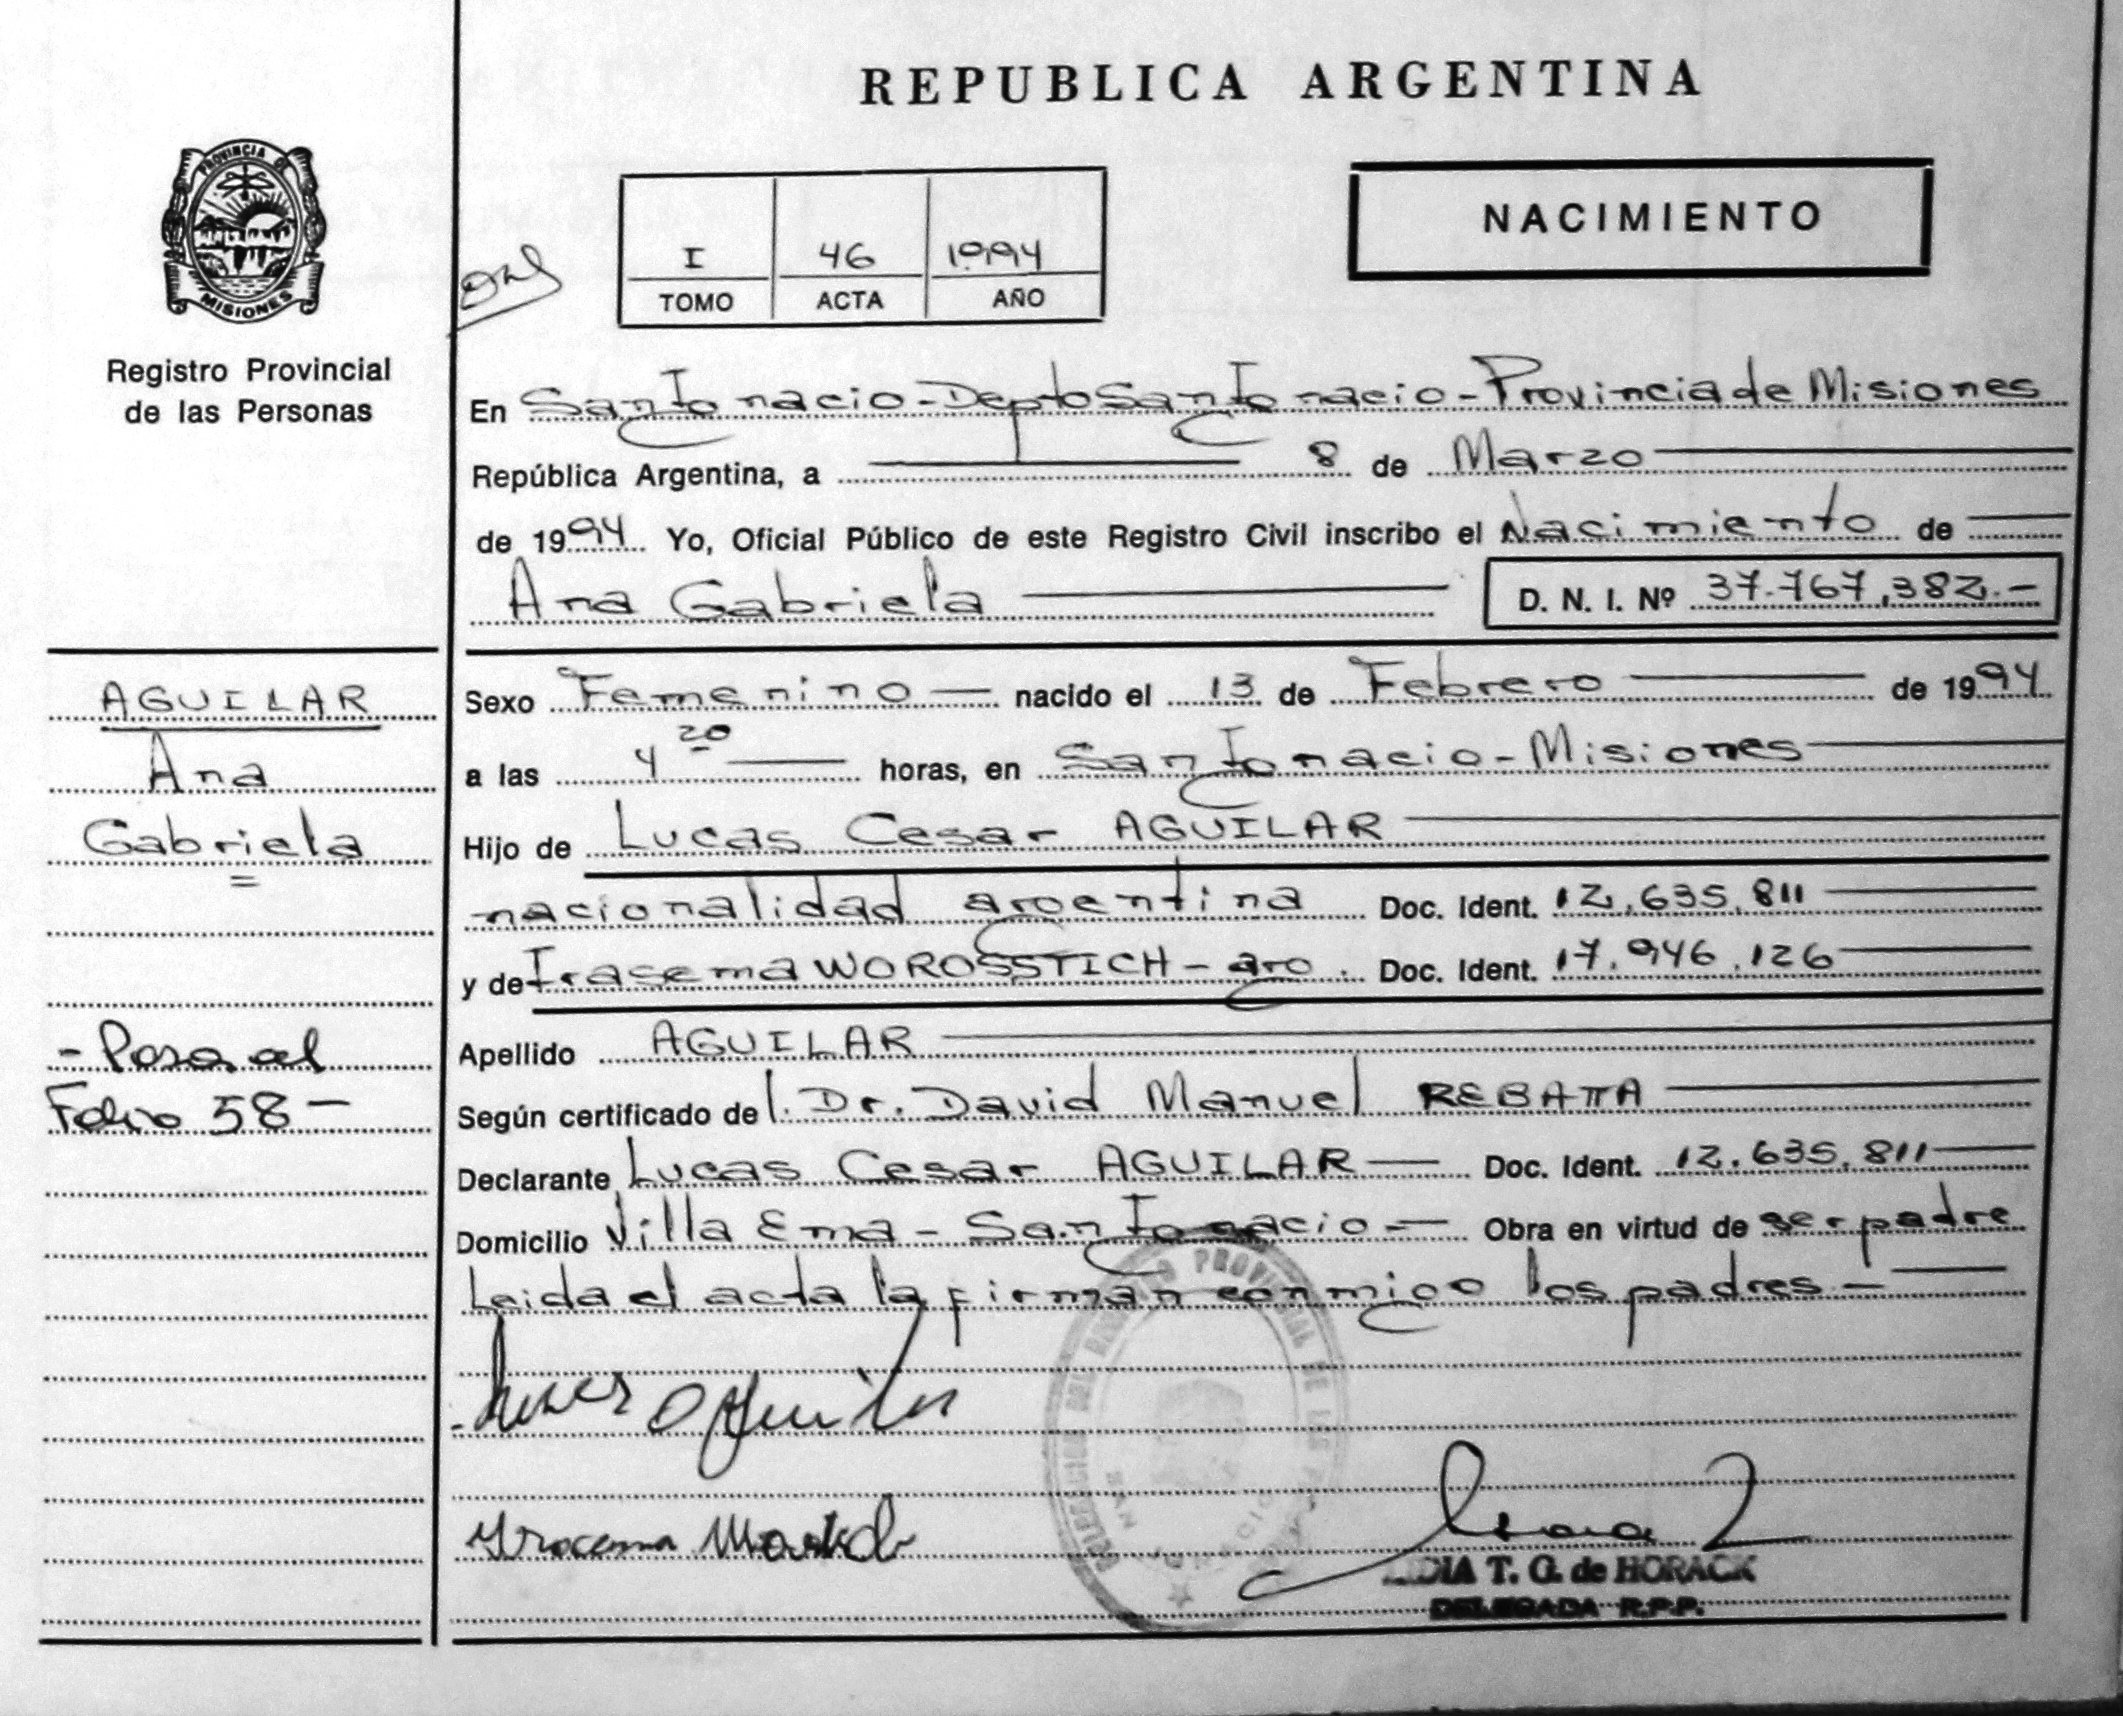 REPUBLICA ARGENTINA
PROVINCIA DE
MISIONES
Registro Provincial
de las Personas
NACIMIENTO
I 46 1994
TOMO ACTA AÑO
En San Ignacio - Depto San Ignacio - Provincia de Misiones
República Argentina, a 8 de Marzo
de 1994 Yo, Oficial Público de este Registro Civil inscribo el Nacimiento de
Ana Gabriela D. N. I. Nº 37.767.382.-
AGUILAR
Ana
Gabriela
Sexo Femenino nacido el 13 de Febrero de 1994
a las 4 20 horas, en San Ignacio - Misiones
Hijo de Lucas Cesar AGUILAR
nacionalidad argentina Doc. Ident. 12.635.811
y de Irasema WOROSSTICH - arg. Doc. Ident. 17.946.126
- Pasa al
Folio 58 -
Apellido AGUILAR
Según certificado de l. Dr. David Manuel REBATTA
Declarante Lucas Cesar AGUILAR Doc. Ident. 12.635.811
Domicilio Villa Ema - San Ignacio - Obra en virtud de ser padre
Leida el acta la firman conmigo los padres -
Lucas Aguilar
DIA T. G. de HORACK
DELEGADA R.P.P.